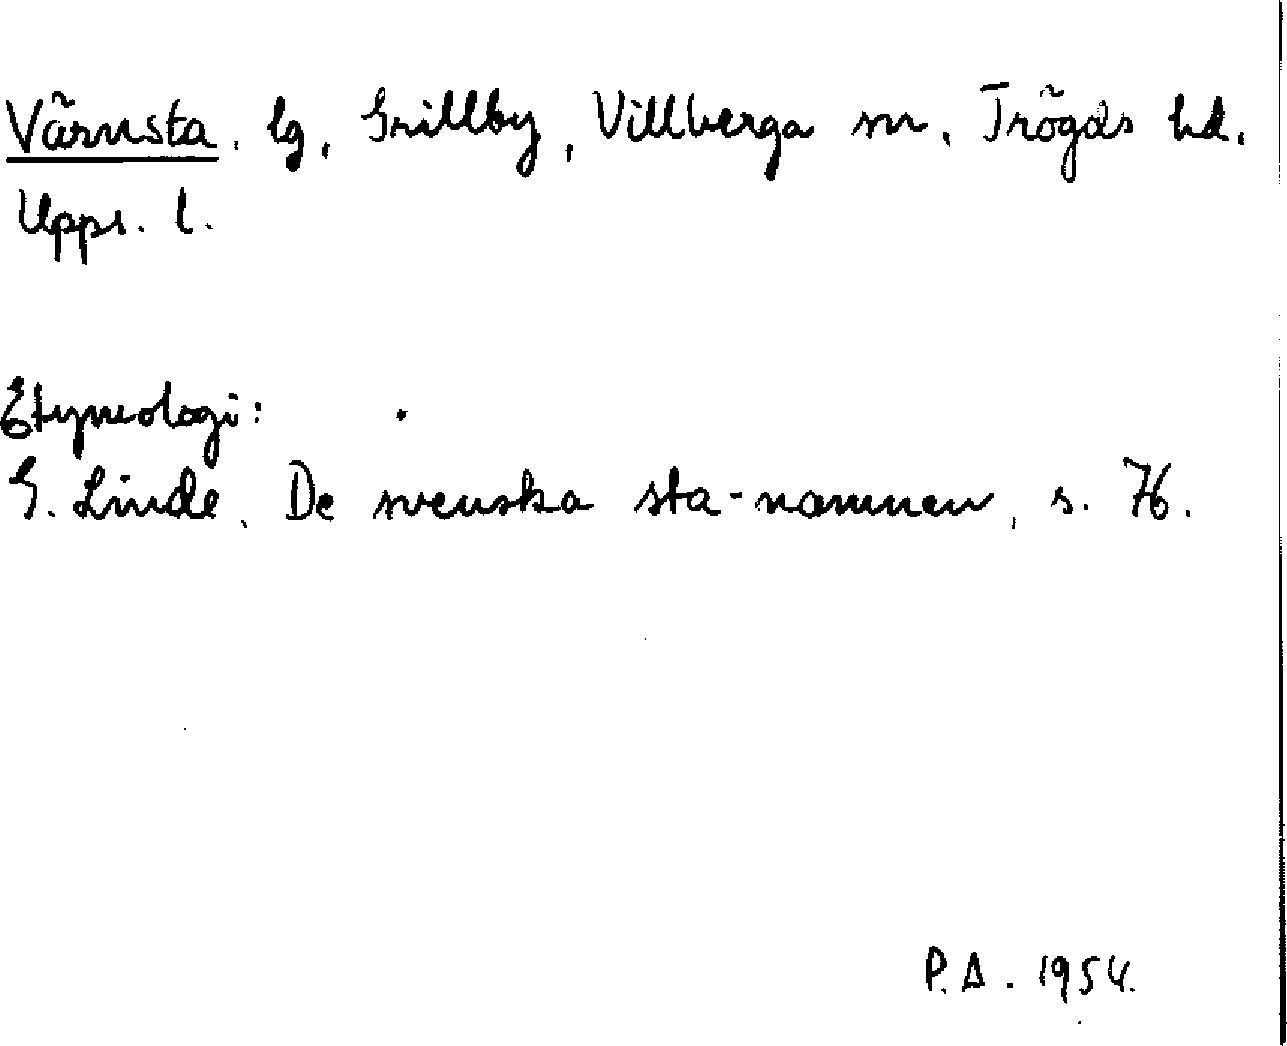 Värnsta. lg, Grillby, Villberga sn, Trögds hd.
Upps. l.
Etymologi:
G. Linde, De svenska sta-namnen, s. 76.
P.A. 1954.